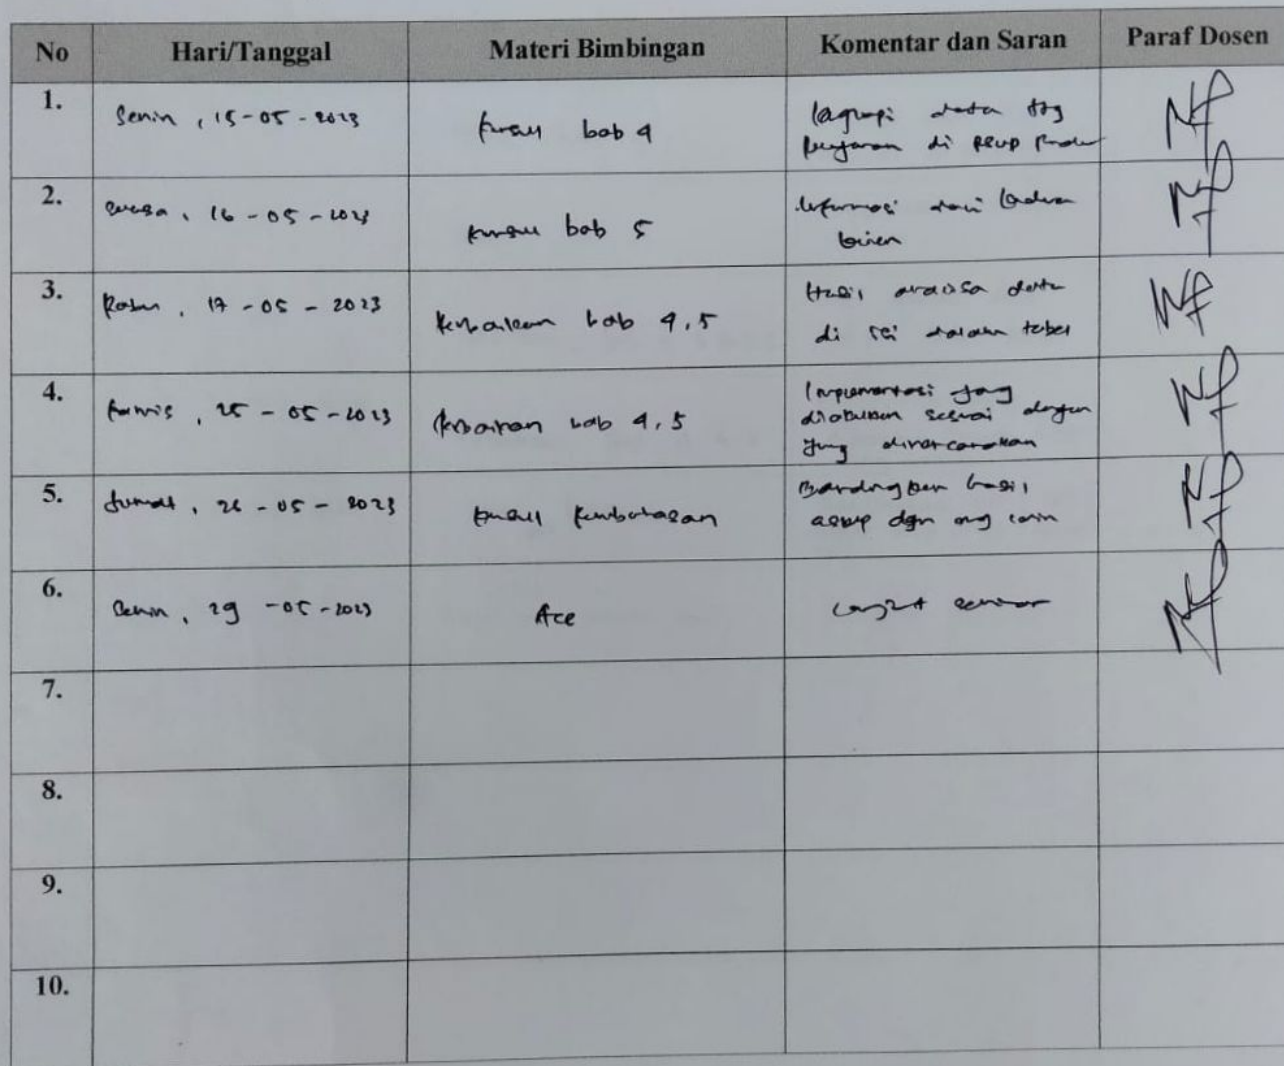 No Hari/Tanggal Materi Bimbingan Komentar dan Saran Paraf Dosen
1. Senin, 15-05-2023 bab 4 data ttg
di RSUP
2. Selasa, 16-05-2023 bab 5 Informasi dari
3. Rabu, 17-05-2023 bab 4,5 Hasil analisa data
di dalam tabel
4. Kamis, 25-05-2023 bab 4,5 Implementasi yang
dilakukan sesuai dengan
yang direncanakan
5. Jumat, 26-05-2023 Bandingkan hasil
askep dgn org lain
6. Senin, 29-05-2023 Acc Lanjut seminar
7.
8.
9.
10.